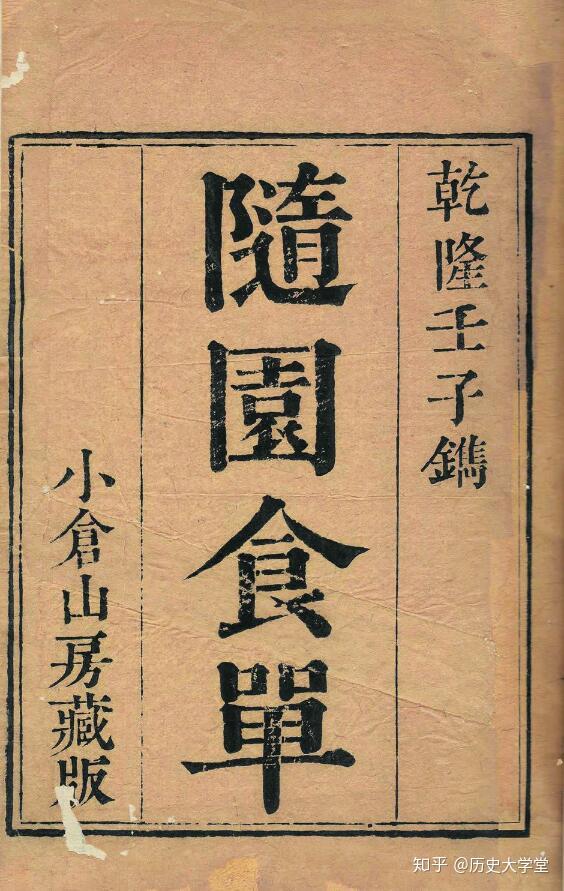 乾隆壬子鐫
隨園食單
小倉山房藏版
知乎 @历史大学堂